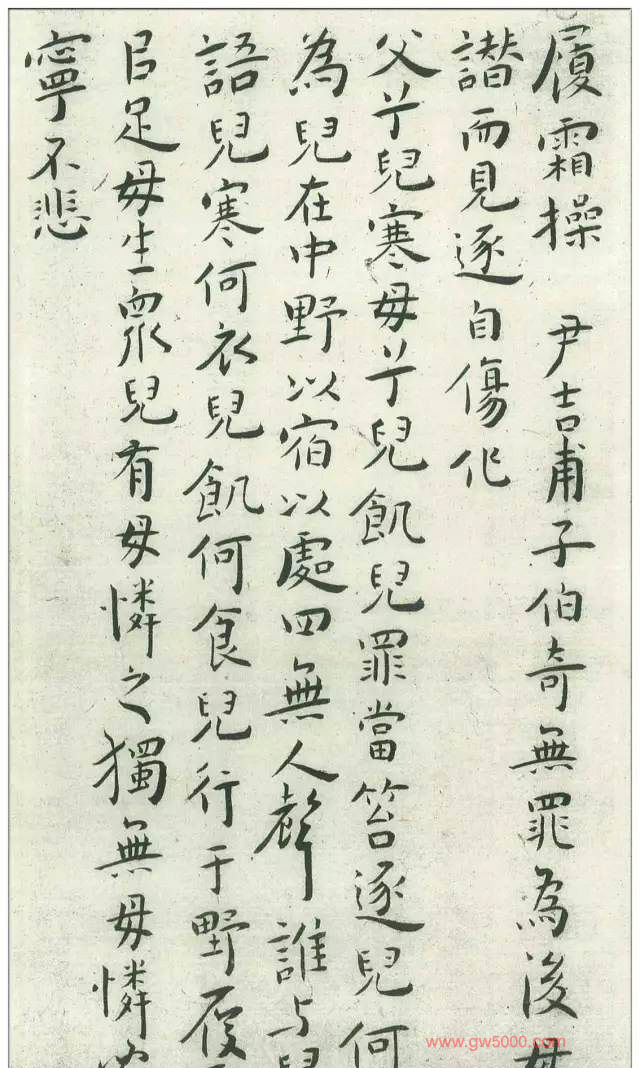 履霜操 尹吉甫子伯奇無罪為後母
譖而見逐自傷作
父兮兒寒母兮兒飢兒罪當笞逐兒何
為兒在中野以宿以處四無人聲誰与兒
語兒寒何衣兒飢何食兒行于野履
以足母生眾兒有母憐之獨無母憐
寧不悲
www.gw5000.com